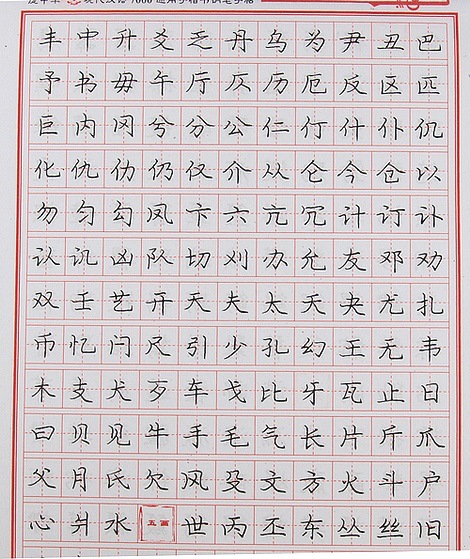 丰中升爻乏丹乌为尹丑巴
予书毋午厅仄历厄反区匹
巨内冈兮分公仁仃什仆仉
化仇仂仍仅介从仑今仓以
勿匀勾凤卞六亢冗计订讣
认讥凶队切刈办允友邓劝
双壬艺开天夫太夭央尤扎
币忆闩尺引少孔幻王无韦
木支犬歹车戈比牙瓦止日
曰贝见牛手毛气长片斤爪
父月氏欠风殳文方火斗户
心爿水五画世丙丕东丛丝旧